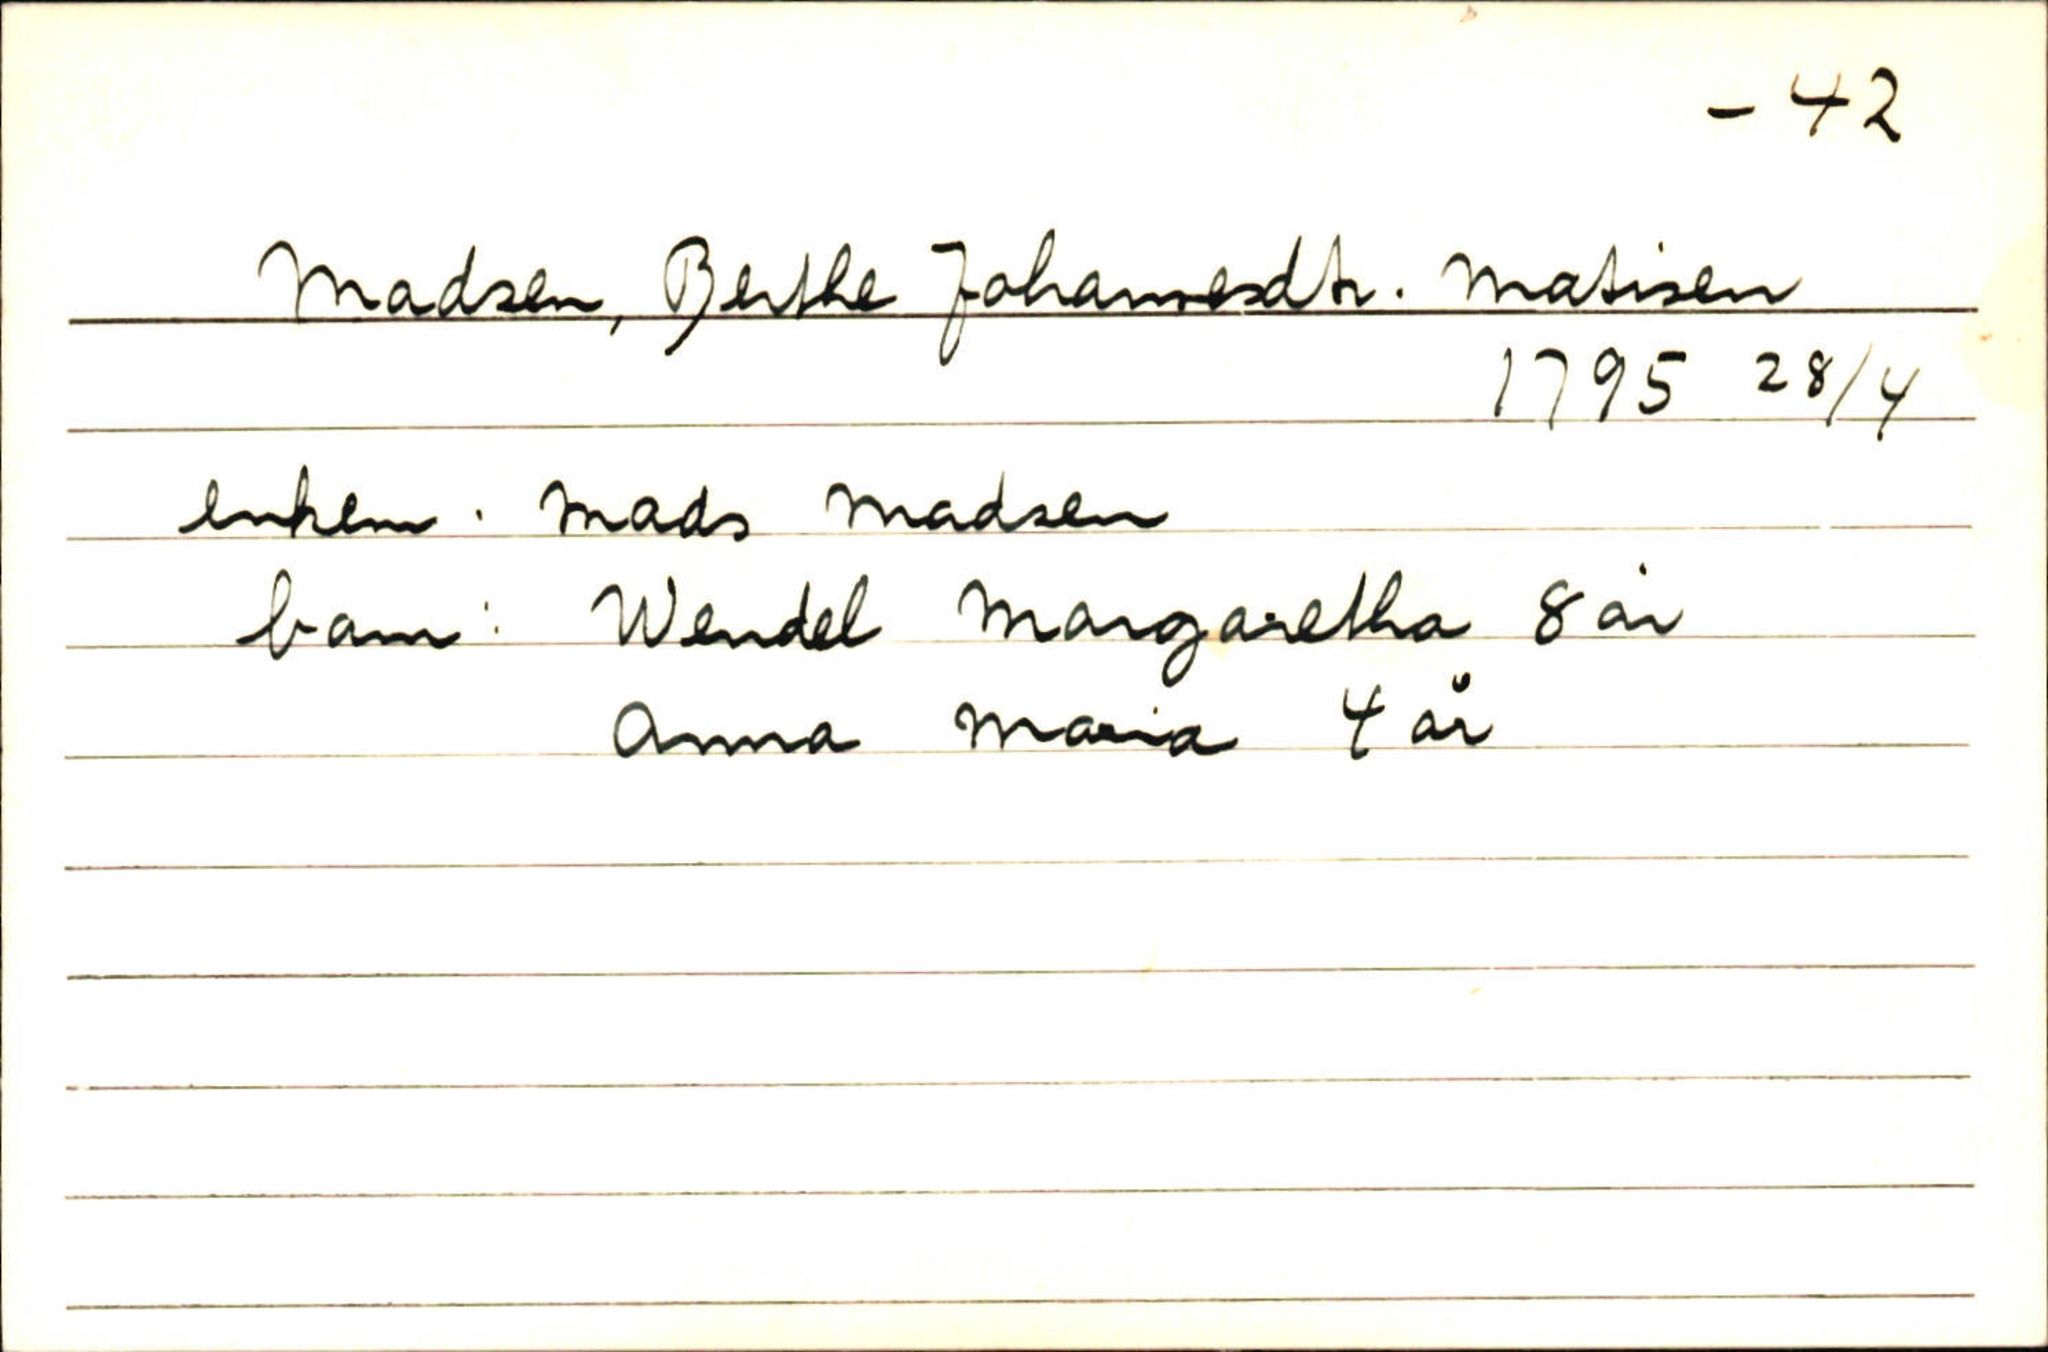 - 42
Madsen, Berthe Johannesdtr. Matisen
1795 28/4
enkem. Mads Madsen
barn: Wendel Margaretha 8 år
Anna Maria 4 år